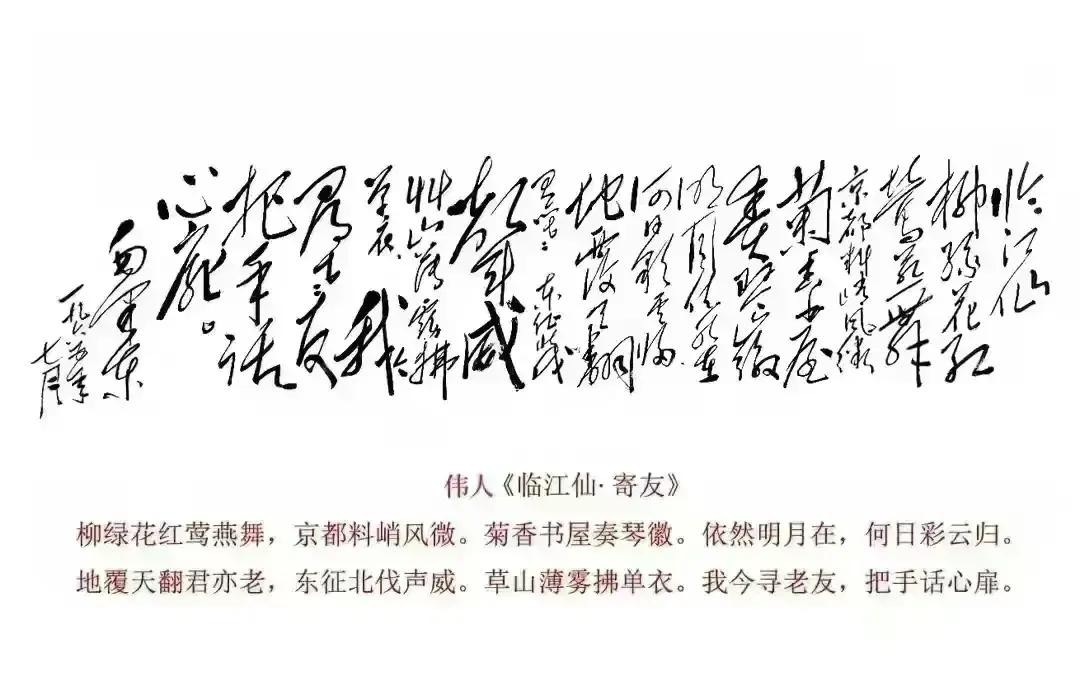 临江仙
柳绿花红
莺燕舞
京都料峭风微
菊香书屋
奏琴徽
明月依然在
何日彩云归
地覆天翻
君亦老 东征北伐
声威
草山薄雾拂
单衣 我今
寻老友
把手话
心扉。
毛泽东
一九六五年
七月
伟人《临江仙·寄友》
柳绿花红莺燕舞，京都料峭风微。菊香书屋奏琴徽。依然明月在，何日彩云归。
地覆天翻君亦老，东征北伐声威。草山薄雾拂单衣。我今寻老友，把手话心扉。